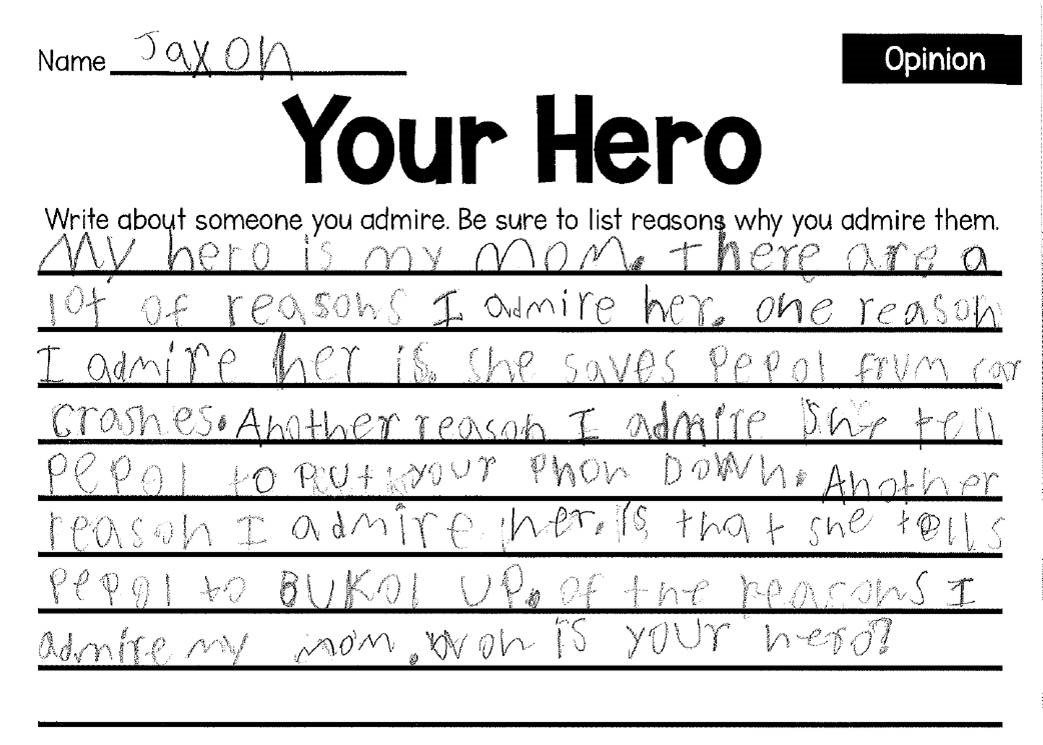 Name Jaxon
Opinion
Your Hero
Write about someone you admire. Be sure to list reasons why you admire them.
My hero is my mom. There are a
lot of reasons I admire her. one reason
I admire her is. she saves pepol frum car
crashes. Another reason I admire she tell
pepol to put your phon DOWN. Another
reason I admire her. is that she tells
pepol to BUKOl UP. of the reasons I
admire my mom. won is your hero?